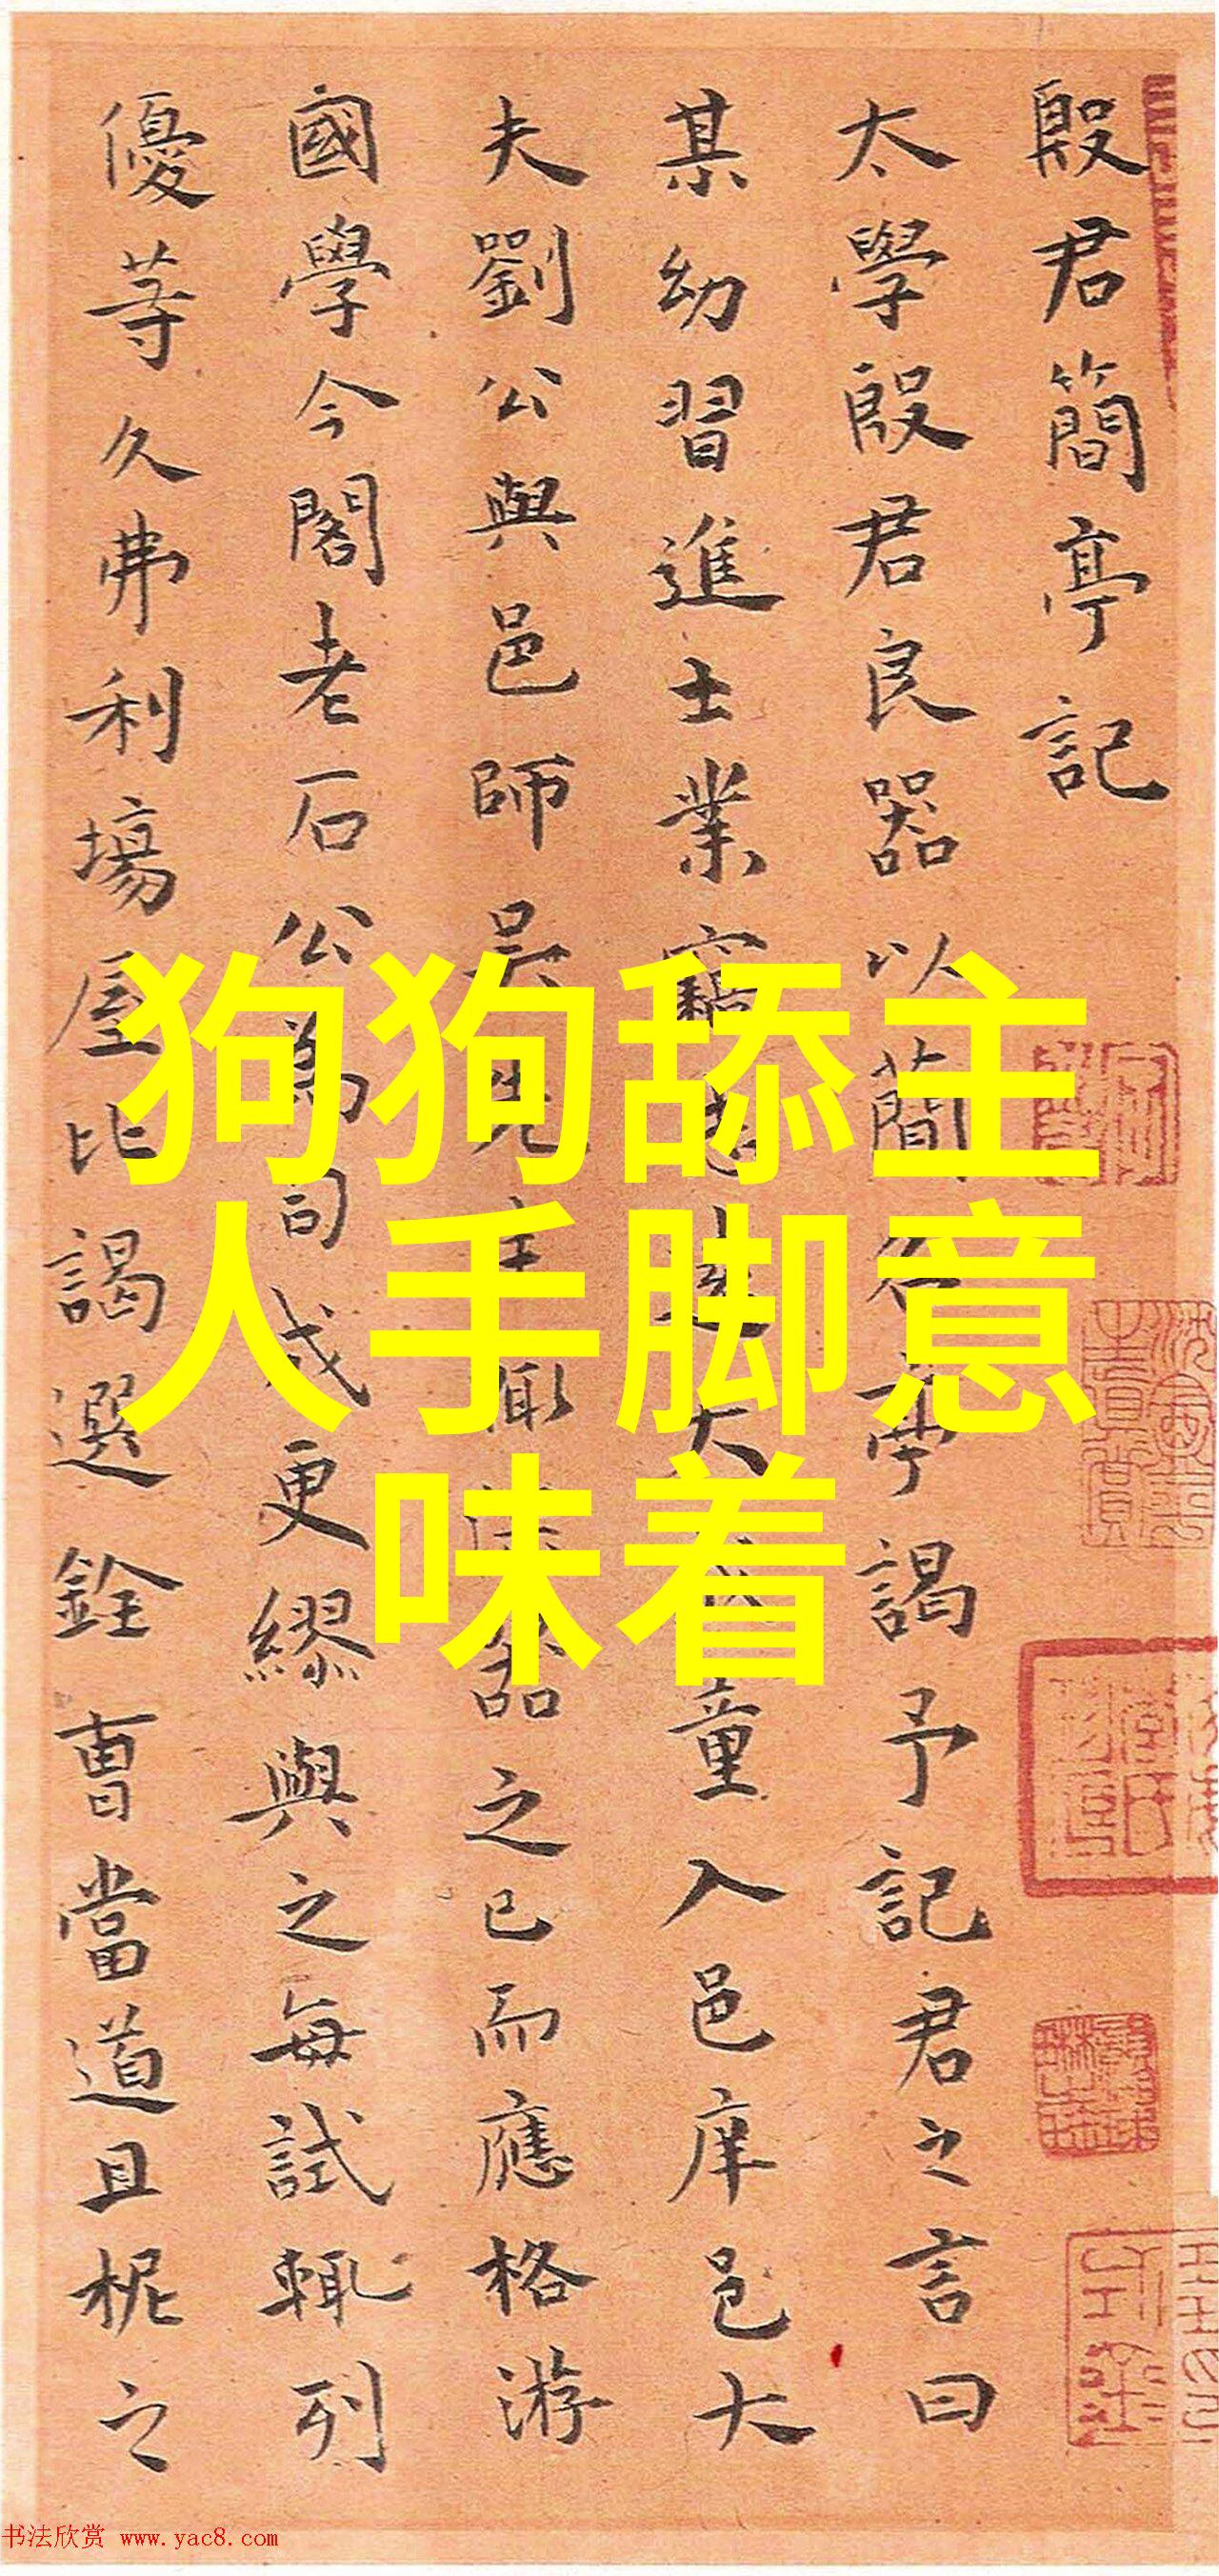 殷君簡亭記
太學殷君良器以簡名亭謁予記君之言曰
某幼習進士業窮
童入邑庠邑大
夫劉公與邑師吳
器之已而應格游
國學今閣老石公為司成更繆與之每試輒列
優等久弗利場屋比謁選銓曹當道且柅之
狗狗舔主
人手脚意
味着
书法欣赏 www.yac8.com